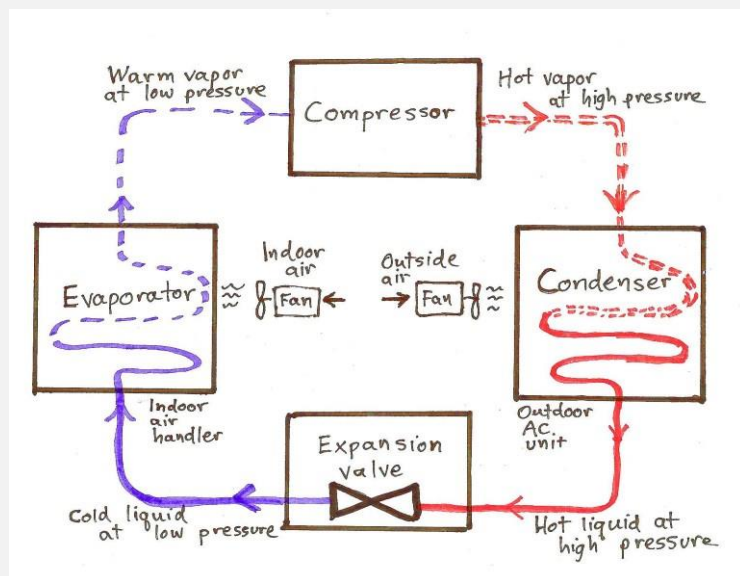 Warm vapor
at low pressure
Compressor
Hot vapor
at high pressure
Evaporator
Indoor
air
Fan
Outside
air
Fan
Condenser
Indoor
air
handler
Outdoor
A.C.
unit
Expansion
valve
Cold liquid
at low pressure
Hot liquid at
high pressure